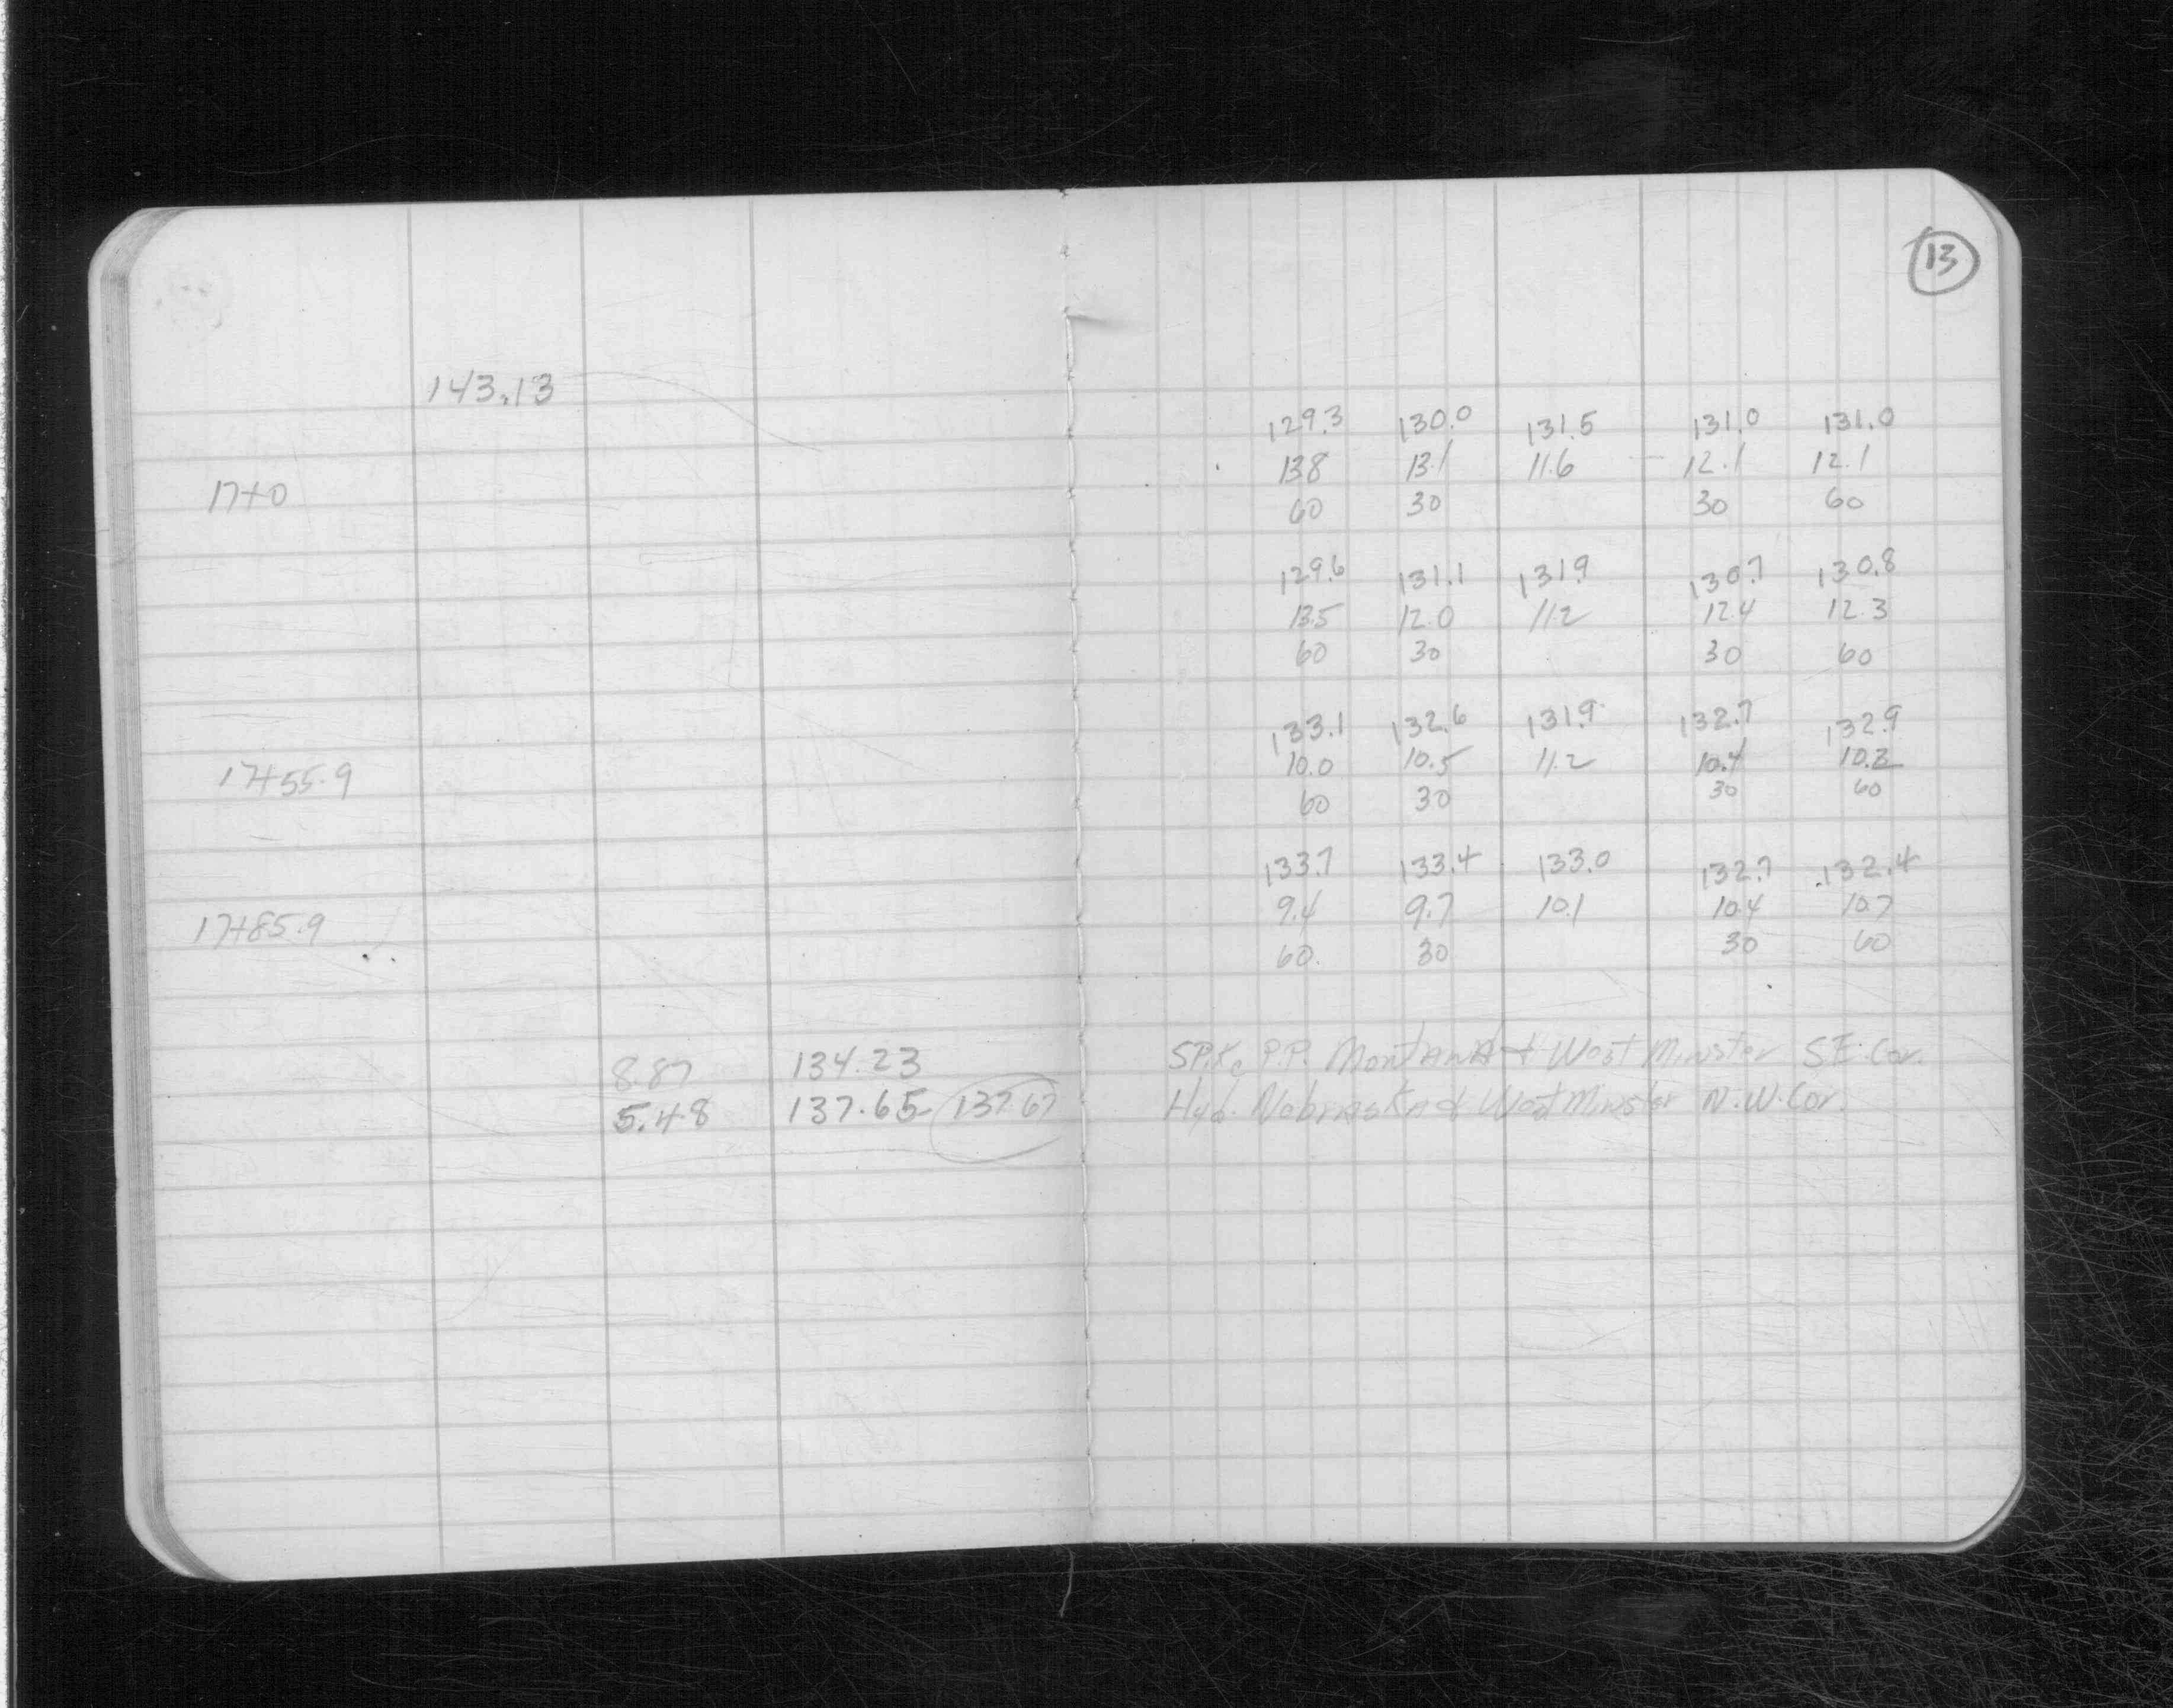 13
143.13
129.3 130.0 131.5 131.0 131.0
13.8 13.1 11.6 12.1 12.1
17+0 60 30 30 60
129.6 131.1 131.9 130.7 130.8
13.5 12.0 11.2 12.4 12.3
60 30 30 60
133.1 132.6 131.9 132.7 132.9
17+55.9 10.0 10.5 11.2 10.4 10.2
60 30 30 60
133.7 133.4 133.0 132.7 132.4
17+85.9 9.4 9.7 10.1 10.4 10.7
60 30 30 60
8.87 134.23 SPike P.P. Montana & West Minster S.E. Cor.
5.48 137.65 137.67 Hyd. Nebraska & West Minster N.W. Cor.